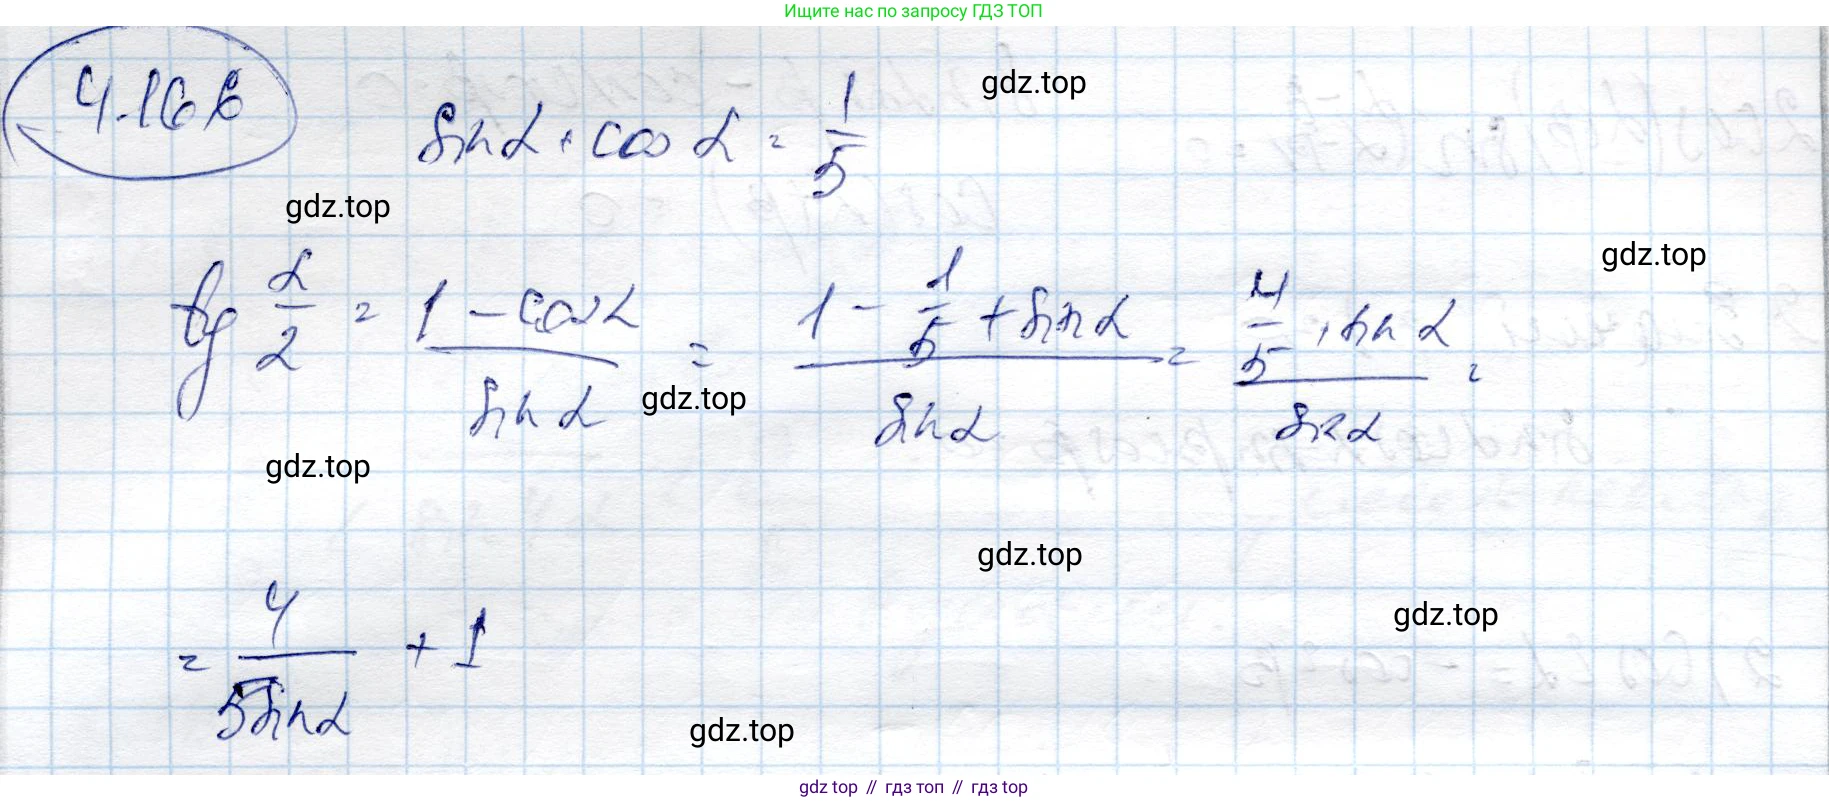 Ищите нас по запросу ГДЗ ТОП
4.16б
sin α + cos α = 1/5
gdz.top
gdz.top
gdz.top
tg α/2 = (1 - cos α)/(sin α) = (1 - 1/5 + sin α)/(sin α) = (4/5 + sin α)/(sin α) =
gdz.top
gdz.top
gdz.top
gdz.top
= 4/(5 sin α) + 1
gdz.top
gdz top // гдз топ // гдз top